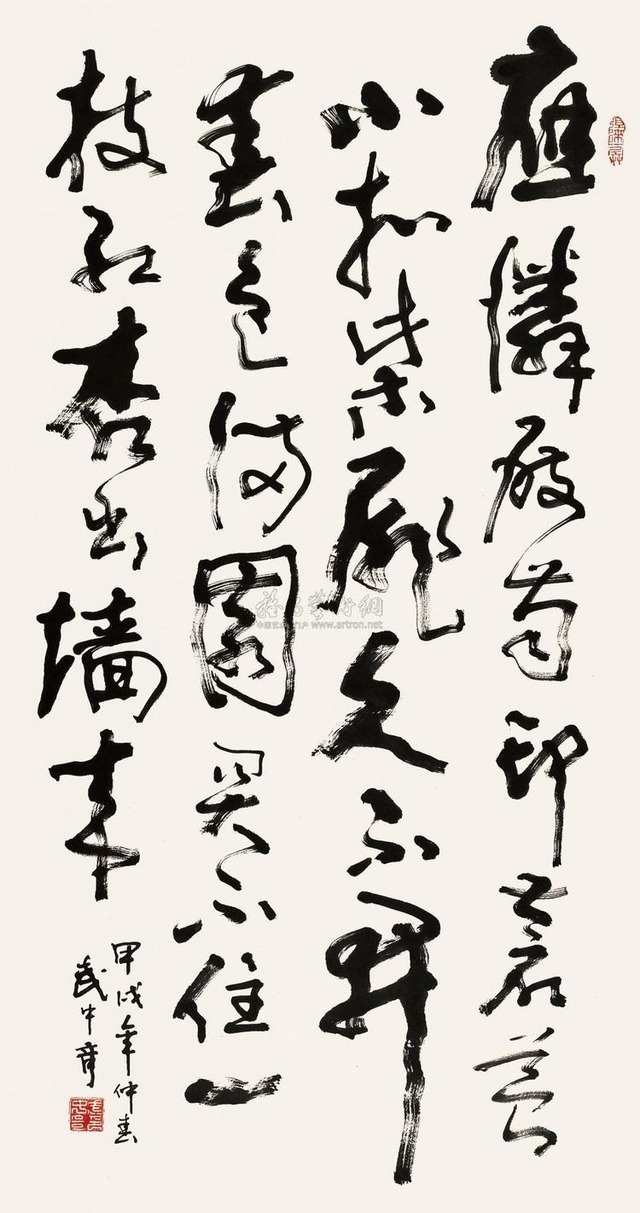 應憐屐齒印蒼苔
小扣柴扉久不開
春色滿園關不住一
枝紅杏出墙來
甲戌年仲春
武中奇
www.artron.net